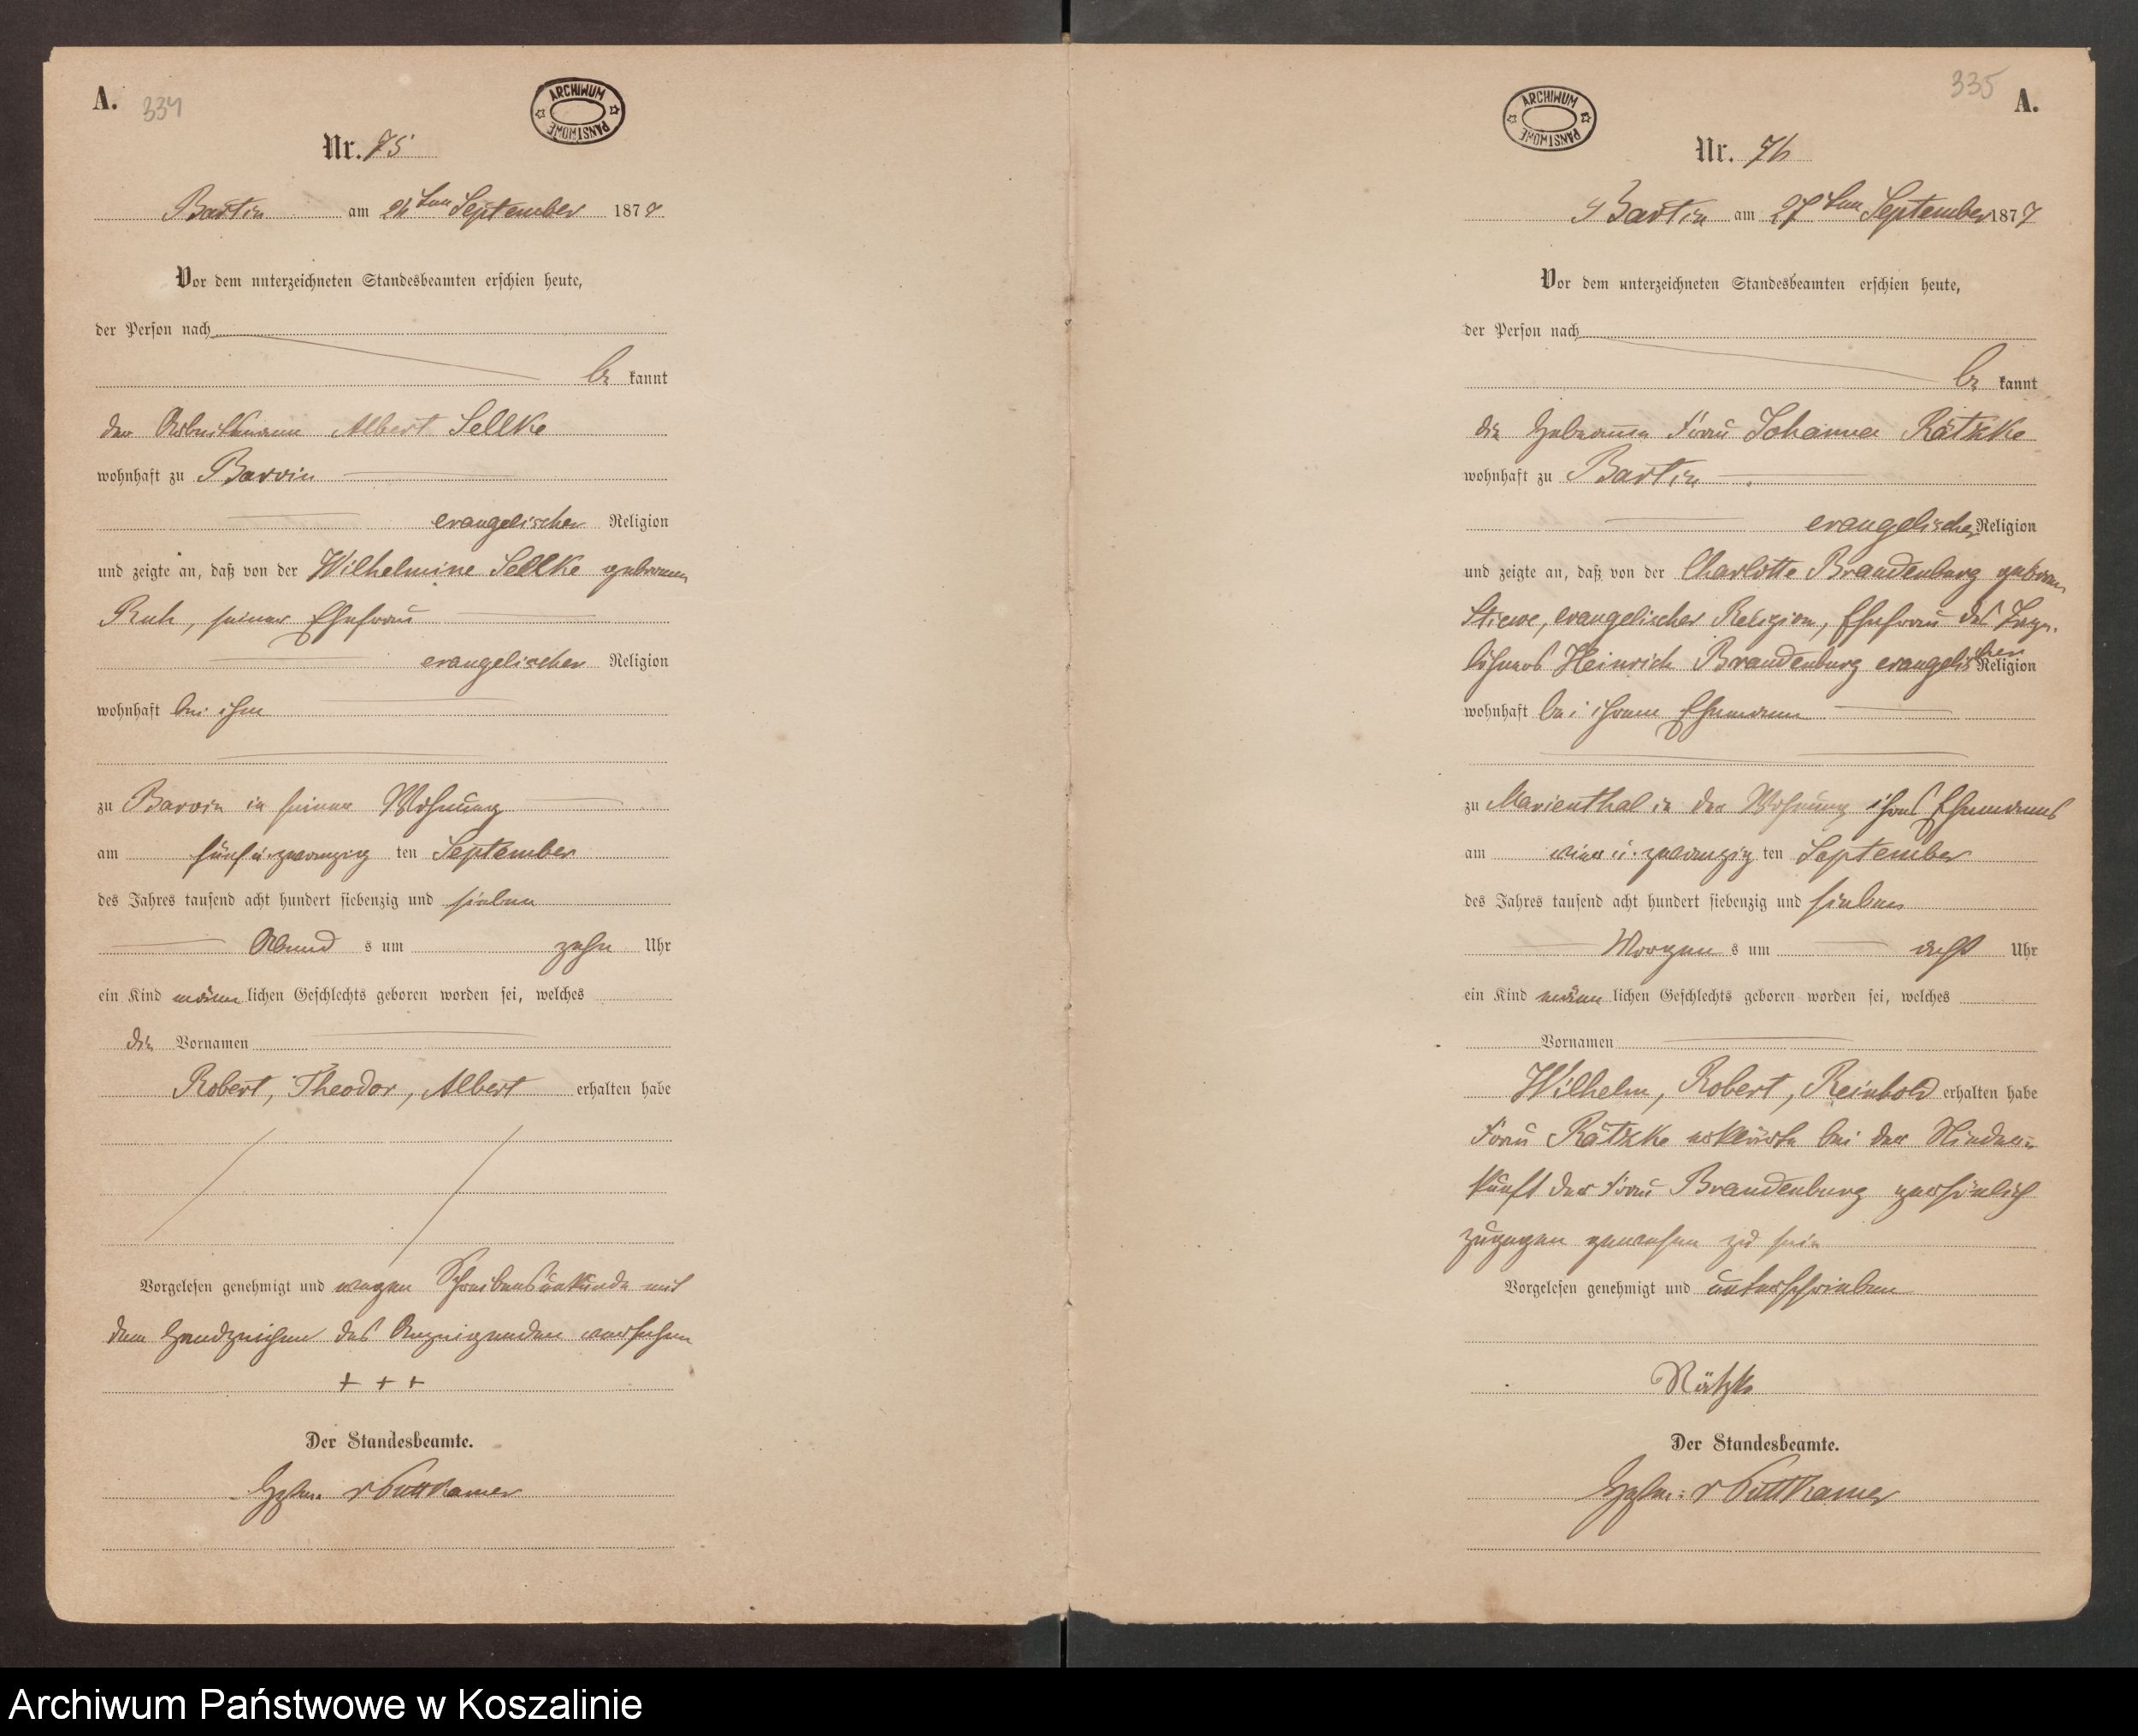 A. 334
ARCHIWUM PAŃSTWOWE
Nr. 75
Bartin am 26ten September 1877
Vor dem unterzeichneten Standesbeamten erschien heute,
der Person nach
be kannt
der Arbeitsmann Albert Sellke
wohnhaft zu Barvin
evangelischer Religion
und zeigte an, daß von der Wilhelmine Sellke geborenen
Ruh, seiner Ehefrau
evangelischer Religion
wohnhaft bei ihm
zu Barvin in seiner Wohnung
am fünf u. zwanzig ten September
des Jahres tausend acht hundert siebenzig und sieben
Abend s um zehn Uhr
ein Kind männ lichen Geschlechts geboren worden sei, welches
die Vornamen
Robert, Theodor, Albert erhalten habe
Vorgelesen genehmigt und wegen Schreibensunkunde mit
dem Handzeichen des Anzeigenden versehen
+ + +
Der Standesbeamte.
v Puttkamer
335 A.
ARCHIWUM PAŃSTWOWE
Nr. 76
Bartin am 27ten September 1877
Vor dem unterzeichneten Standesbeamten erschien heute,
der Person nach
be kannt
die Hebamme Frau Johanna Rätzke
wohnhaft zu Bartin
evangelischer Religion
und zeigte an, daß von der Charlotte Brandenburg geboren
Stiewe, evangelischer Religion, Ehefrau des Tage-
löhners Heinrich Brandenburg evangelischer Religion
wohnhaft bei ihrem Ehemann
zu Marienthal in der Wohnung ihres Ehemanns
am vier u. zwanzig ten September
des Jahres tausend acht hundert siebenzig und sieben
Morgen s um acht Uhr
ein Kind männ lichen Geschlechts geboren worden sei, welches
Vornamen
Wilhelm, Robert, Reinhold erhalten habe
Frau Rätzke erklärte bei der Nieder-
kunft der Frau Brandenburg persönlich
zugegen gewesen zu sein
Vorgelesen genehmigt und unterschrieben
Rätzke
Der Standesbeamte.
v Puttkamer
Archiwum Państwowe w Koszalinie